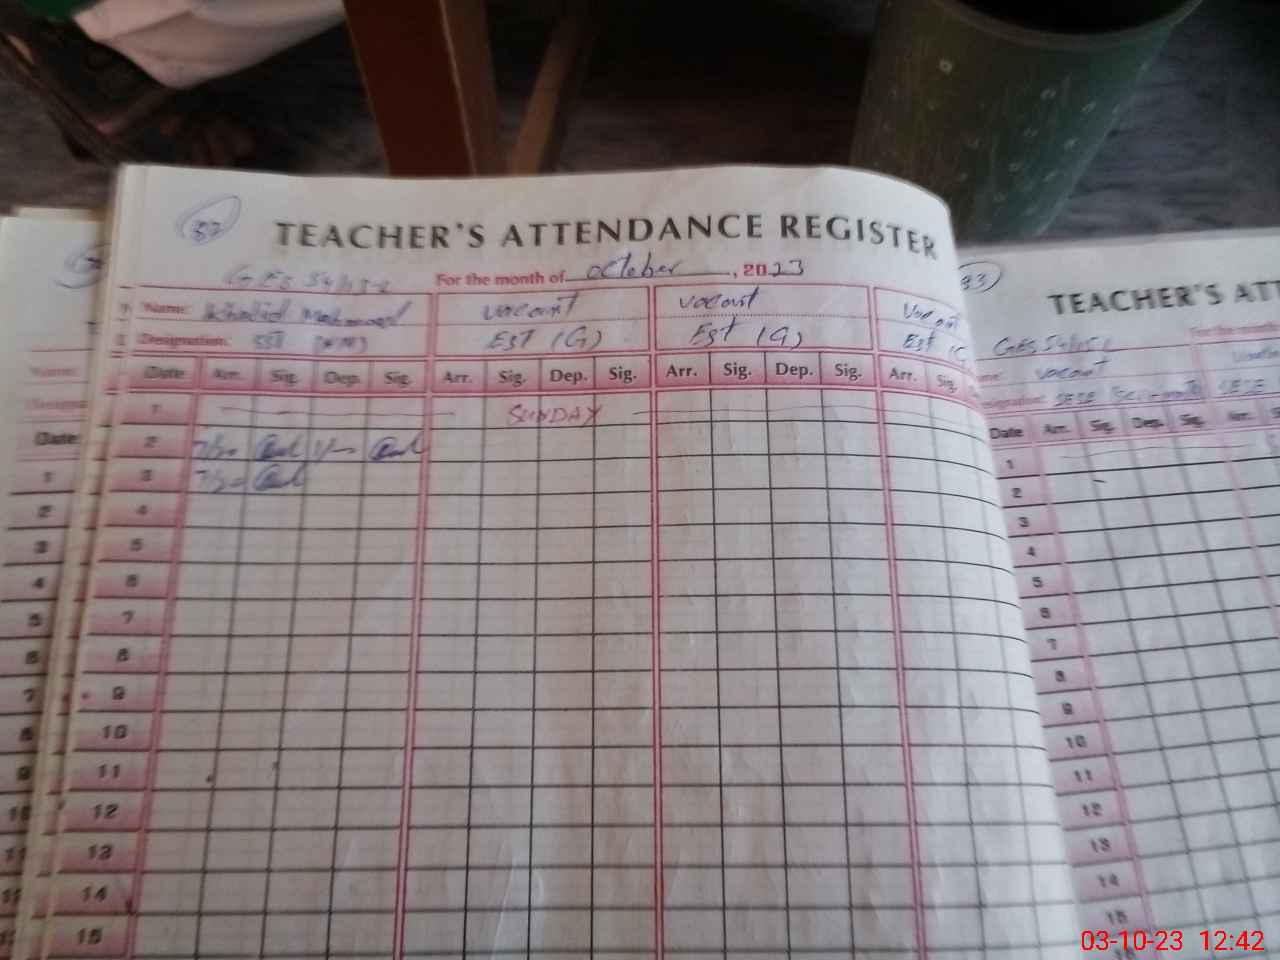 82
TEACHER'S ATTENDANCE REGISTER
GES 54/15-L
For the month of October, 2023
Name: Khalid Mehmood vacant vacant Vacant
Designation: SST Est (G) Est (G) Est (G
Date Arr. Sig. Dep. Sig. Arr. Sig. Dep. Sig. Arr. Sig. Dep. Sig. Arr. Sig.
1 SUNDAY
2
3
4
5
6
7
8
9
10
11
12
13
14
15
83
TEACHER'S ATT
For the month
GES 54/15L
vacant
SESE SESE
Date Arr. Sig. Dep. Sig. Arr.
1
2
3
4
5
6
7
8
9
10
11
12
13
14
15
Date
1
2
3
4
5
6
7
8
9
10
03-10-23 12:42